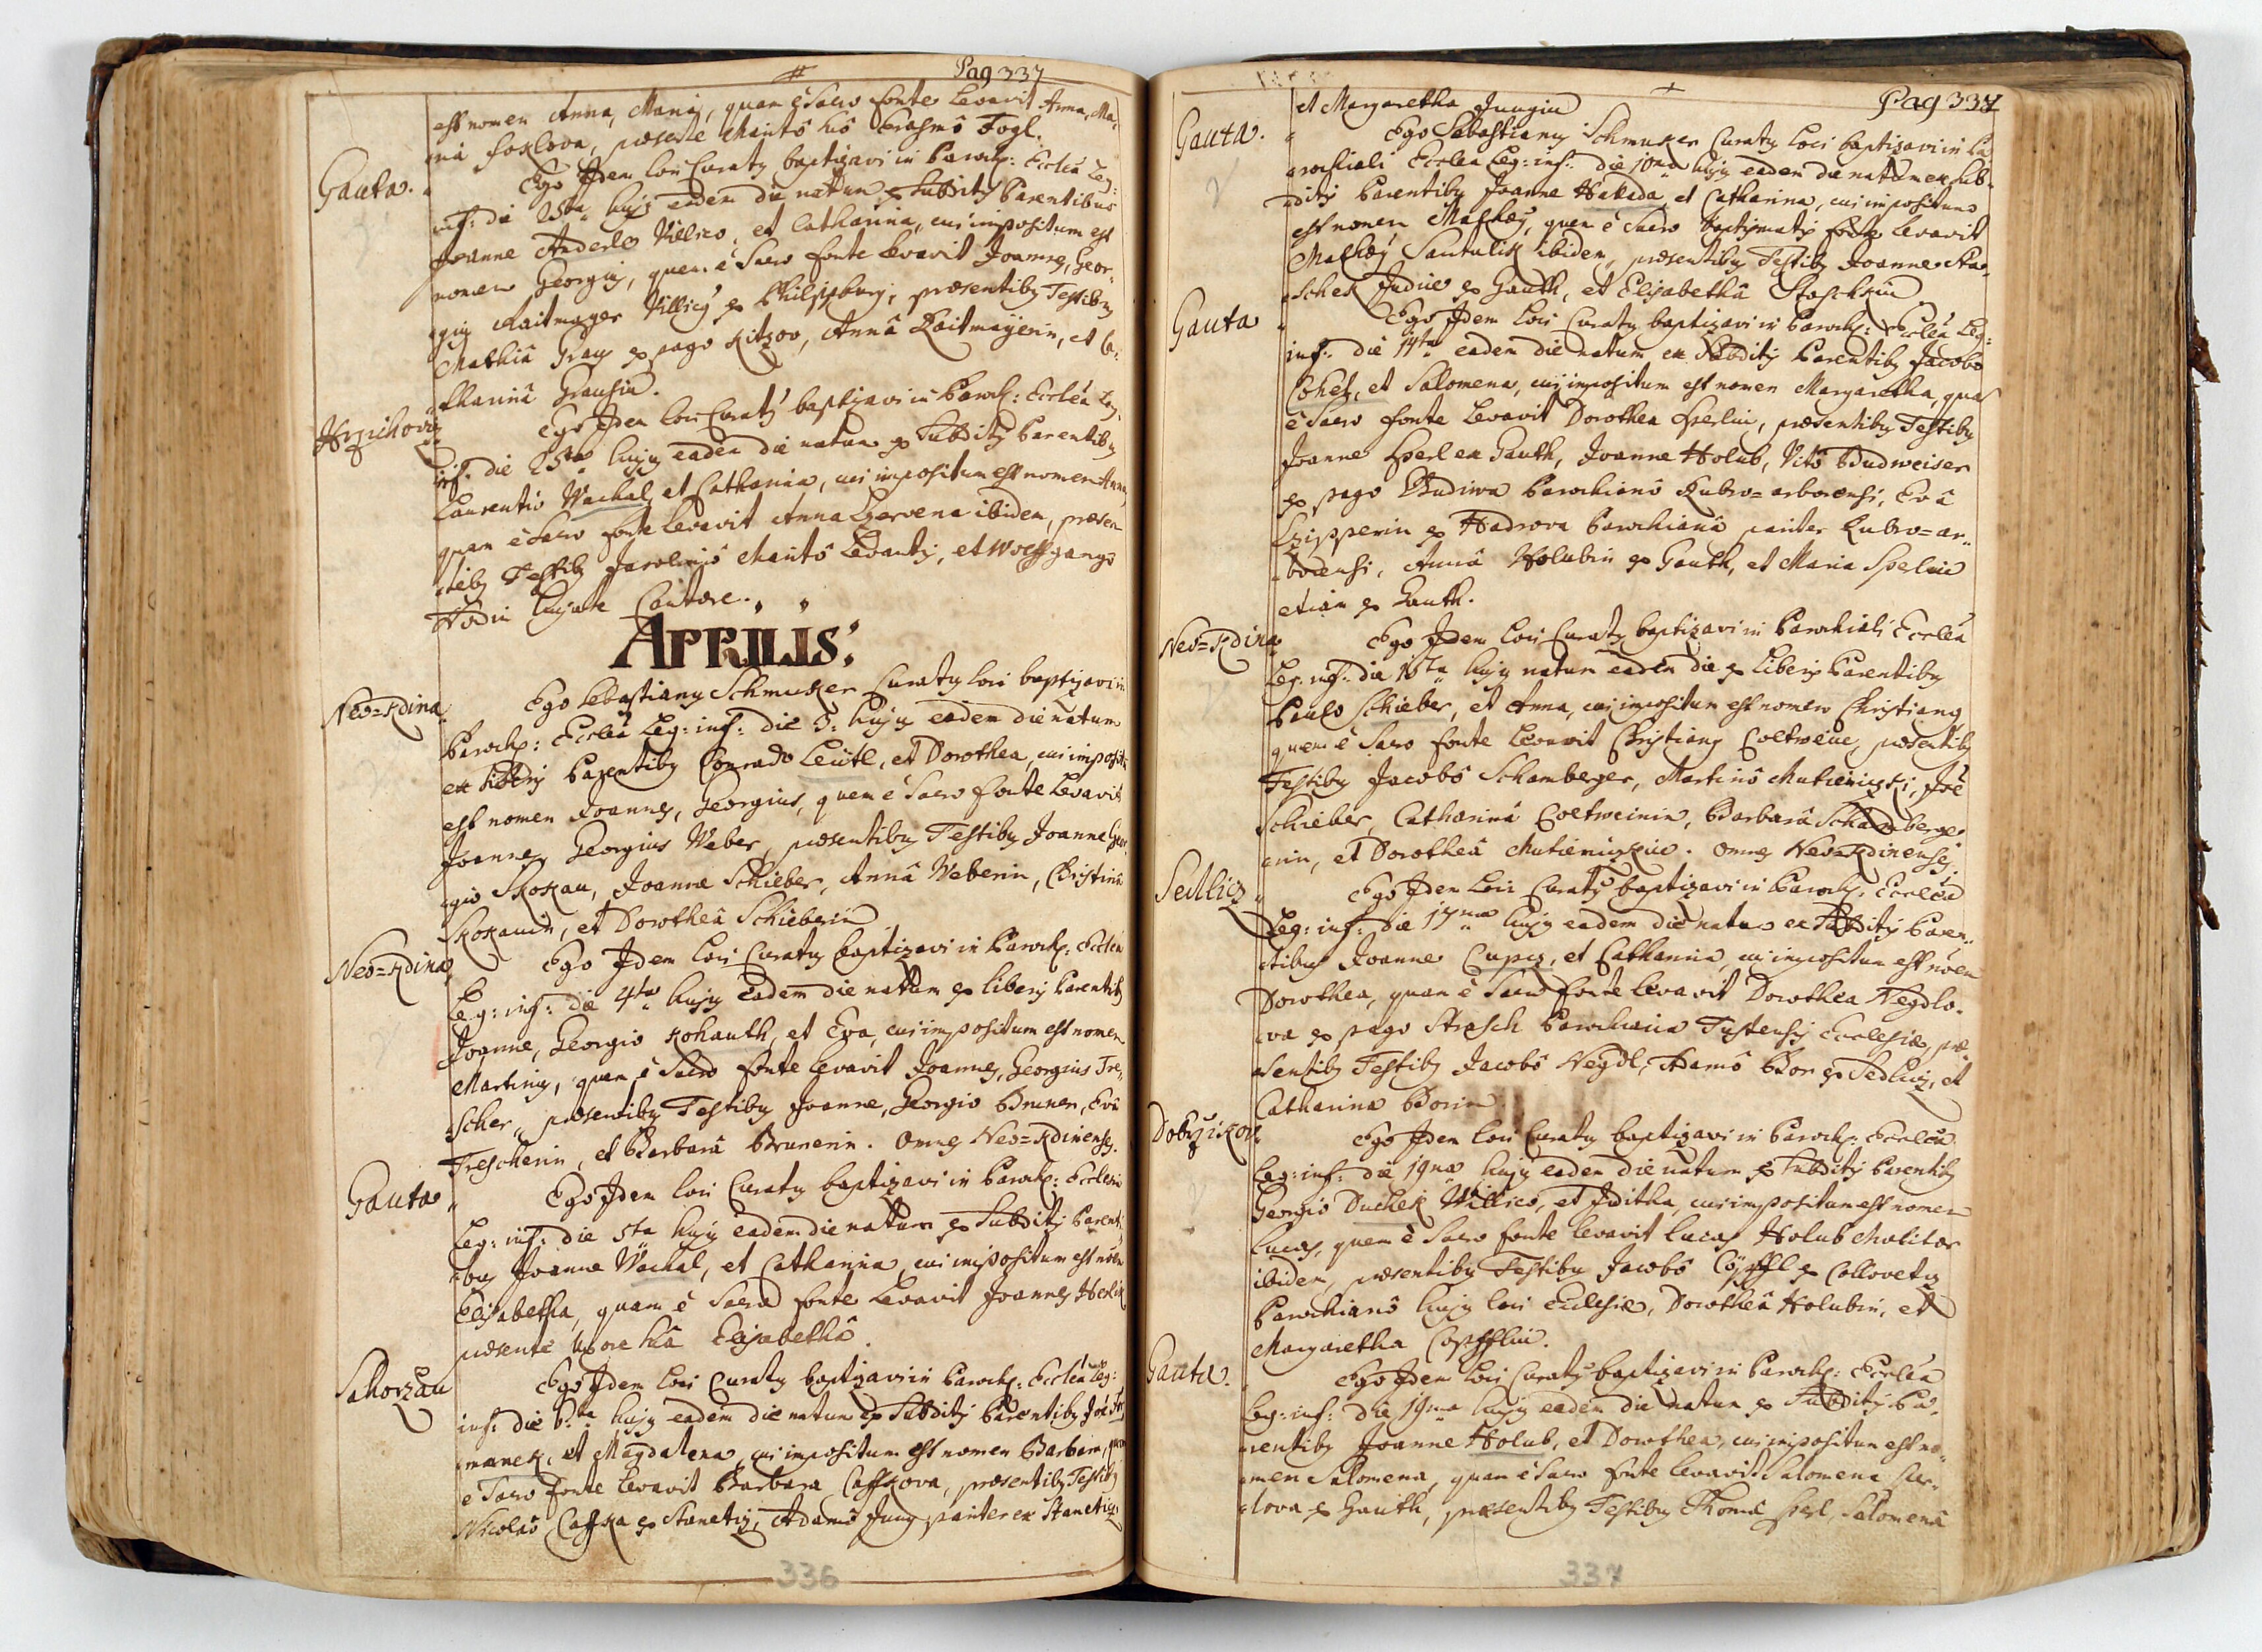 Pag 337
est nomen Anna, Maria, quam è Sacro fonte Levavit Anna, Ma,
ria Foxlova, præsente Maritô suô Erasmô Fogl.
Gauta. Ego Idem loci Curatg baptizavi in Paroch: Eccleâ Leg:
inf: die 25ta hujg eadem die natum ex Subditis Parentibus
Joanne Anderle Villico, et Catharina, cui impositum est
nomen Georgig, quem è Sacro fonte Levavit Joannes, Geor,
gig Raitmayer Villicg ex Philipsburg, præsentibg Testibg
Mathiâ Graus ex pago Kitzov, Annâ Raitmayerin, et Ca,
tharinâ Grausin.
Hrzichovitz Ego Idem loci Curatg baptizavi in Paroch: Eccleâ Leg.
inf: die 25ta hujg eadem die natam ex Subditis Parentibg
Laurentio Wachal, et Catharina, cui impositum est nomen Anna,
quam è Sacro fonte levavit Anna Czervena ibidem, præsen
tibg Testibg Jarolimô Maritô Levantis, et Wolffgangô
Hodin hujate Cantore.
APRILIS:
Neo=Kdina. Ego Sebastiang Schmuker Curatg loci baptizavi in
Paroch: Eccleâ Leg: inf: die 3: hujg eadem die natum
ex liberis Parentibg Conrado Leütl, et Dorothea, cui impositū
est nomen Joannes, Georgius, quem è Sacro fonte Levavit
Joannes Georgius Weber, præsentibg Testibg Joanne Geor,
giô Skokan, Joanne Schieber, Annâ Weberin, Christinâ
Skokanin, et Dorotheâ Schieberin
Neo=Kdina Ego Idem loci Curatg baptizavi in Paroch: Eccleâ
Leg: inf: die 4ta hujg eadem die natum ex liberis Parentibg
Joanne, Georgio Kohauth, et Eva, cui impositum est nomen
Marting, quem è Sacro fonte levavit Joannes, Georgius Tre,
scher, præsentibg Testibg Joanne, Georgio Bruner, Evâ
Trescherin, et Barbarâ Brunerin. Omnes Neo=Kdinenses.
Gauta Ego Idem loci Curatg baptizavi in Paroch: Ecclesia
Leg: inf: die 5ta hujg eadem die natam ex Subditis Parenti
bus Joanne Wachal, et Catharina, cui impositum est nōen
Elisabetha, quam è Sacro fonte Levavit Joannes
præsente uxore suâ Elisabethâ.
Sahorzan Ego Idem loci Curatg baptizavi in Paroch: Eccleâ Leg:
inf: die 6ta hujg eadem die natam ex Subditis Parentibg Joē
manek, et Magdalena, cui impositum est nomen Barbara, quam
è Sacro fonte Levavit Barbara Caffkova, præsentibg Testibg
Nicolaô Caffka ex Stanetiz, Adamô Jung pariter ex Stanetiz,
336
Pag 337
et Margaretha Jungin
Gauta. Ego Sebastiang Schmuker Curatg loci baptizavi in Pa
rochiali Ecclea Leg: inf: die 10ma hujg eadem die natum ex Sub,
ditis Parentibg Joanne Hakada, et Catharina, cui impositum
est nomen Mathæg, quem è Sacro baptismatis fonte Levavit
Mathæg Santulik ibidem, præsentibg Testibg Joanne Sta,
schek Judice ex Gauth, et Elisabethâ Staschkin
Gauta Ego Idem loci Curatg baptizavi in Paroch: Eccleâ Leg:
inf: die 14ta eadem die natam ex Subditis Parentibg Jacobo
Cohel, et Salomena, cui impositum est nomen Margaretha, quam
è Sacro fonte Levavit Dorothea Sperlin, præsentibg Testibg
Joanne Sperl ex Gauth, Joanne Holub, Vitô Budweiser
ex pago Chudiwa Parochianô Rubro=arborensi, Evâ
Czipperin ex Hadrova Parochianâ pariter Rubro=ar,
borensi, Annâ Holubin ex Gauth, et Maria Sperlin
etiam ex Gauth.
Neo=Kdina Ego Idem loci Curatg baptizavi in Parochiali Eccleâ
Leg: inf: die 16ta hujg natum eadem die ex liberis Parentibg
Paulo Schieber, et Anna, cui impositum est nomen Christiang
quem è Sacro fonte Levavit Christiang Coetwein, præsentibg
Testibg Jacobô Schamberger, Martinô Mutieniczki, Joē
Schieber, Catharinâ Coetweinin, Barbarâ Schamberge,
erin, et Dorotheâ Mutieniczkin. Omnes Neo=Kdinenses.
Sedlicz Ego Idem loci Curatg baptizavi in Paroch: Eccleâ
Leg: inf: die 17ma hujg eadem die natam ex Subditis Paren,
tibus Joanne Cupcz, et Catharina, cui impositum est nōen
Dorothea, quam è Sacro fonte levavit Dorothea Negdlo,
va ex pago Strasch Parochiana Tustensis Ecclesiæ, præ
sentibg Testibg Jacobô Negdl, Adamô Bor ex Sedlicz, et
Catharina Borin.
Dobrzikov Ego Idem loci Curatg baptizavi in Paroch: Eccleâ
Leg: inf: die 19na hujg eadem die natum ex Subditis Parentibg
Georgio Duchek Villico, et Juditha, cui impositum est nomen
Lucas, quem è Sacro fonte levavit Lucas Holub Molitor
ibidem, præsentibg Testibg Jacobô Cöpffl ex Collovetz
Parochianô hujg loci Ecclesiæ, Dorotheâ Holubin, et
Margaretha Cöpfflin.
Gauta. Ego Idem loci Curatg baptizavi in Paroch: Eccleâ
Leg: inf: die 19na hujg eadem die natam ex Subditis Pa,
rentibg Joanne Holub, et Dorothea, cui impositum est no,
men Salomena, quam è Sacro fonte levavit Salomena Per,
lova ex Gauth, præsentibg Testibg Thomâ Perl, Salomenâ
337